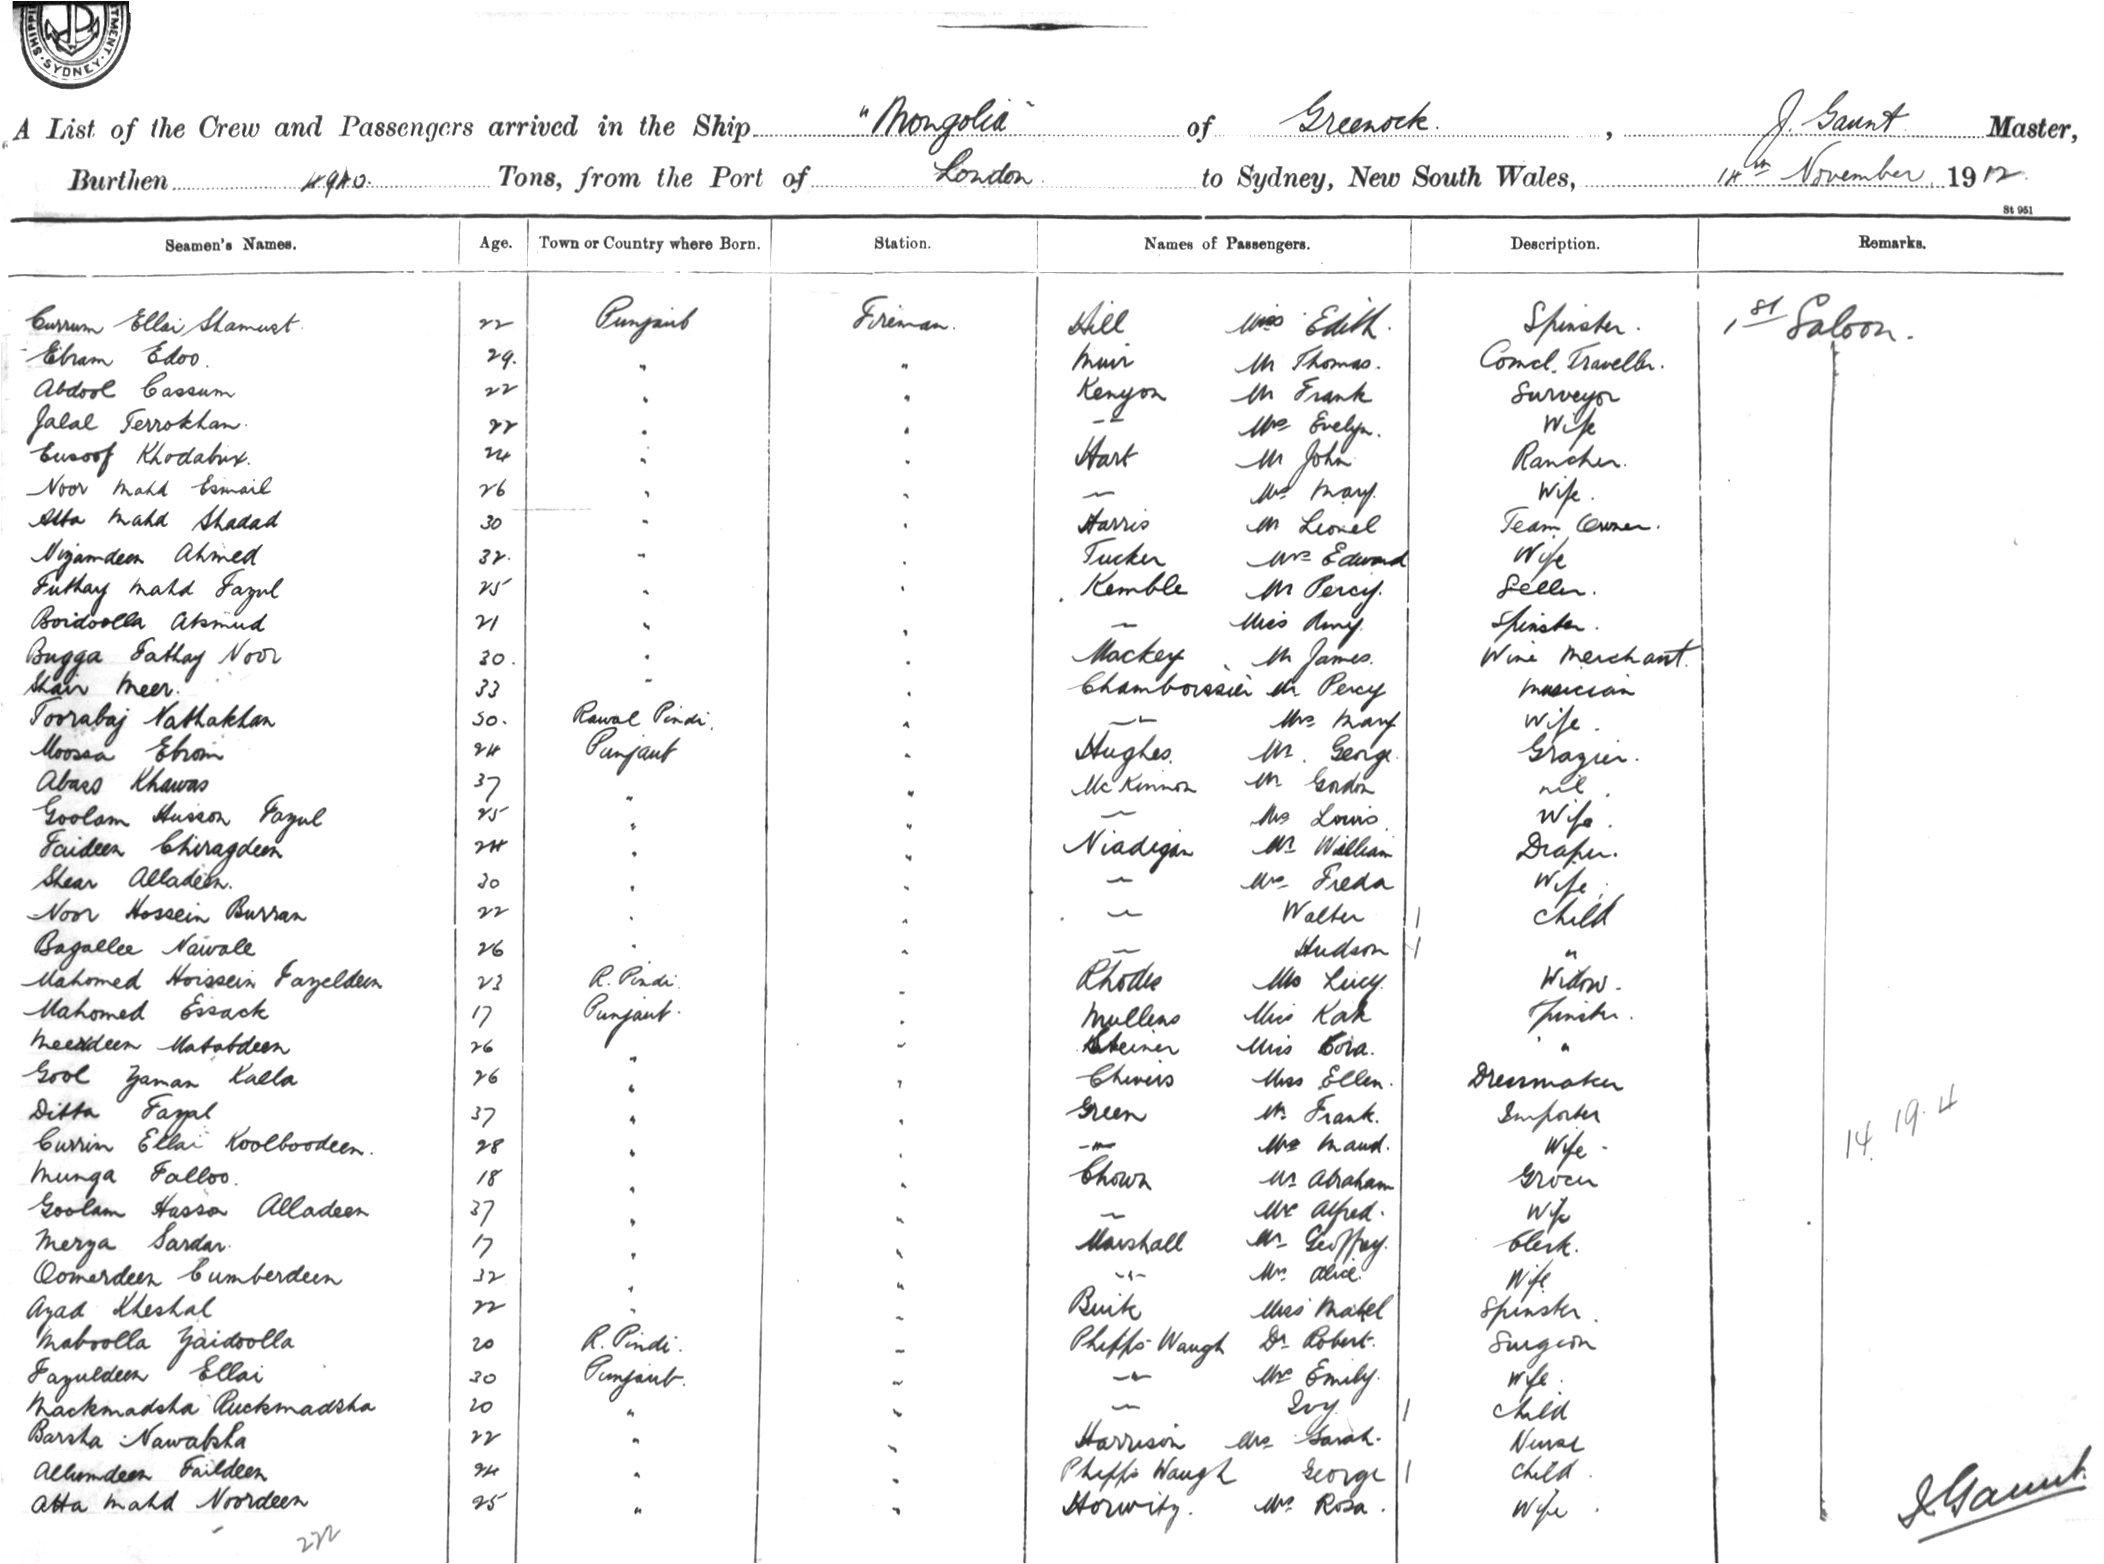 SHIPPI TMENT. SYDNEY.
A List of the Crew and Passengers arrived in the Ship "Mongolia" of Greenock. , J. Gaunt Master,
Burthen 4940. Tons, from the Port of London to Sydney, New South Wales, 14th November 1912.
St 951
Seamen's Names. Age. Town or Country where Born. Station. Names of Passengers. Description. Remarks.
Currum Ellai Shamust. 22 Punjaub Fireman. Hill Miss Edith. Spinster. 1st Saloon.
Ebram Edoo. 29. " " Muir Mr Thomas. Comcl. Traveller.
Abdool Cassum 22 " " Kenyon Mr Frank Surveyor
Jalal Terrokhan. 22 " " -"- Mrs Evelyn. Wife
Eusoof Khodabux. 24 " " Hart Mr John Rancher.
Noor Mahd Esmail 26 " " — Mrs Mary. Wife.
Atta Mahd Shadad 30 " " Harris Mr Lionel Team Owner.
Nizamdeen Ahmed 32. " " Tucker Mrs Edward Wife
Futhay Mahd Fazul 25 " " Kemble Mr Percy.
Boidoolla 21 " " — Miss Amy. Spinster.
Bugga Fathay Noor 30. " " Mackey Mr James. Wine Merchant.
Shair Meer. 33 " " Mr Percy Musician
Toorabaj Nathakhan 30. Rawal Pindi. " -"- Mrs Mary Wife.
Moossa Ebrom 24 Punjaub " Hughes. Mr. George Grazier.
Abass Khawas 37 " " McKinnon Mr Gordon nil.
Goolam Husson Fazul 25 " " — Mrs Louis. Wife.
Faideen Chiragdeen 24 " " Niadigan Mr William Draper.
Shear Alladeen. 30 " " — Mrs Freda Wife.
Noor Hossein Burran 22 " " — Walter 1 Child
Bagallee Nawale 26 " " — Hudson 1 "
Mahomed Hoissein Fazeldeen 23 R. Pindi. " Rhodes Mrs Lucy. Widow.
Mahomed Essack 17 Punjaub. " Mullens Miss Kate Spinster.
Meerdeen Matabdeen 26 " " Steiner Miss Cora. "
Gool Zaman Kalla 26 " " Chivers Miss Ellen. Dressmaker
Ditta Fazal 37 " " Green Mr Frank. Importer
Currim Ellai Koolboodeen. 28 " " -"- Mrs Maud. Wife
Munga Falloo. 18 " " Chown Mr Abraham Grocer
Goolam Hasson Alladeen 37 " " — Mrs Alfred. Wife
Merza Sardar. 17 " " Marshall Mr Geoffrey. Clerk.
Oomerdeen Cumberdeen 32 " " -"- Mrs Alice. Wife
Azad Kheshal 22 " " Buik Miss Mabel Spinster.
Maboolla Zaidoolla 20 R. Pindi. " Phipps-Waugh Dr Robert. Surgeon
Fazuldeen Ellai 30 Punjaub. " -"- Mrs Emily. Wife.
Mackmadsha Ruckmadsha 20 " " — Ivy 1 Child
Barsha Nawabsha 22 " " Harrison Mrs Sarah. Nurse
Allumdeen Faildeen 24 " " Phipps Waugh George 1 Child.
Atta Mahd Noordeen 25 " " Horwitz. Mrs Rosa. Wife.
14. 19. 4
222
J. Gaunt.